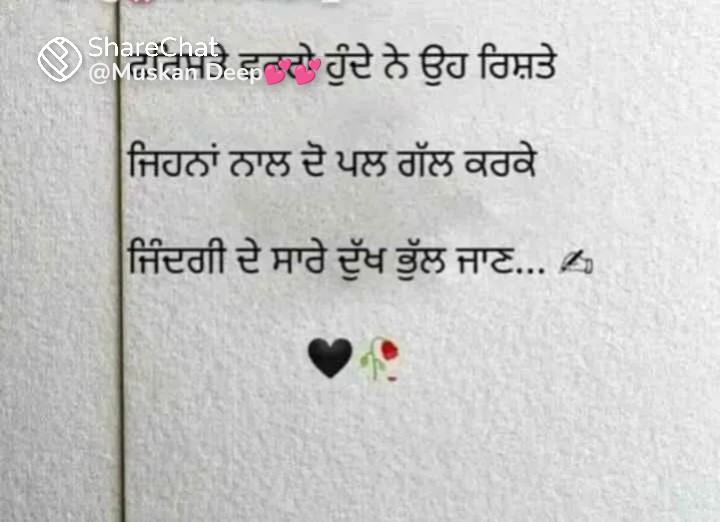 ShareChat
@Muskan Deep💕💕
ਹੁੰਦੇ ਨੇ ਉਹ ਰਿਸ਼ਤੇ
ਜਿਹਨਾਂ ਨਾਲ ਦੋ ਪਲ ਗੱਲ ਕਰਕੇ
ਜਿੰਦਗੀ ਦੇ ਸਾਰੇ ਦੁੱਖ ਭੁੱਲ ਜਾਣ... ✍
🖤🥀